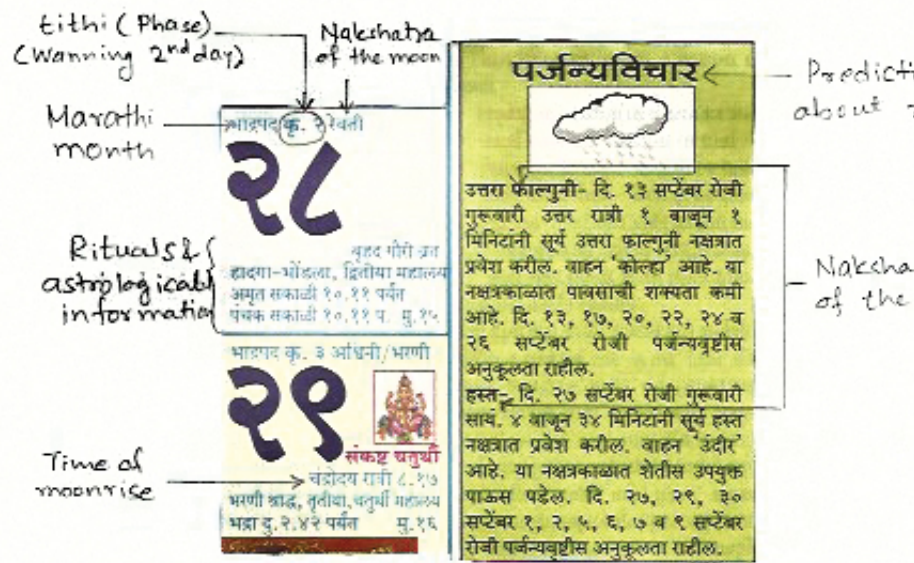 tithi (Phase)
(Wanning 2nd day)
Nakshatra
of the moon
Marathi
month
भाद्रपद कृ. २ रेवती
२८
Rituals &
astrological
information
बृहद गौरी व्रत
हादगा-भोंडला, द्वितीया महालय
अमृत सकाळी १०.११ पर्यंत
पंचक सकाळी १०.११ प. मु.१५
भाद्रपद कृ. ३ अश्विनी/भरणी
२९
संकष्ट चतुर्थी
Time of
moonrise
चंद्रोदय रात्री ८.१७
भरणी श्राद्ध, तृतीया, चतुर्थी महालय
भद्रा दु.२.४२ पर्यंत मु.१६
पर्जन्यविचार
Predicti
about
उत्तरा फाल्गुनी- दि. १३ सप्टेंबर रोजी
गुरूवारी उत्तर रात्री १ वाजून १
मिनिटांनी सूर्य उत्तरा फाल्गुनी नक्षत्रात
प्रवेश करील. वाहन 'कोल्हा' आहे. या
नक्षत्रकाळात पावसाची शक्यता कमी
आहे. दि. १३, १७, २०, २२, २४ व
२६ सप्टेंबर रोजी पर्जन्यवृष्टीस
अनुकूलता राहील.
हस्त- दि. २७ सप्टेंबर रोजी गुरूवारी
सायं. ४ वाजून ३४ मिनिटांनी सूर्य हस्त
नक्षत्रात प्रवेश करील. वाहन 'उंदीर'
आहे. या नक्षत्रकाळात शेतीस उपयुक्त
पाऊस पडेल. दि. २७, २९, ३०
सप्टेंबर १, २, ५, ६, ७ व ९ सप्टेंबर
रोजी पर्जन्यवृष्टीस अनुकूलता राहील.
Naksha
of the